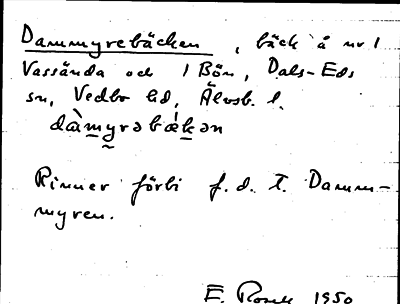 Dammyrebäcken, bäck å nr 1
Vassända och 1 Bön, Dals-Eds
sn, Vedbo hd, Älvsb. l.
dàmyrəbǽkən
Rinner förbi f.d. t. Damm-
myren.
E. 1950